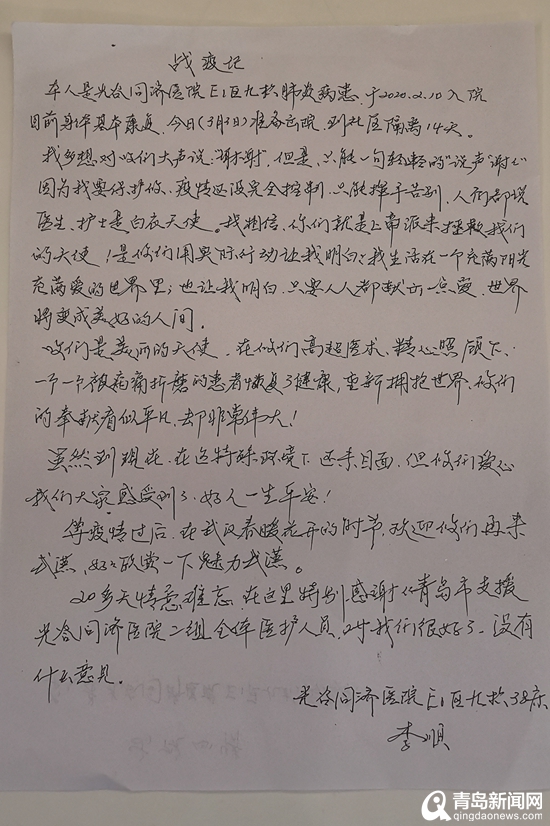 战疫记
本人是光谷同济医院E1区九楼肺炎病患,于2020.2.10入院
目前身体基本康复,今日(3月3日)准备出院,到社区隔离14天。
我多想对你们大声说"谢谢",但是,只能一句轻轻的"说声谢
因为我要保护你,疫情还没完全控制,只能挥手告别,人们都说
医生、护士是白衣天使。我相信,你们就是上帝派来拯救我们
的天使!是你们用实际行动让我明白:我生活在一个充满阳光
充满爱的世界里;也让我明白,只要人人都献出一点爱,世界
将变成美好的人间。
你们是美丽的天使,在你们高超医术、精心照顾下、
一个一个被病痛折磨的患者恢复了健康,重新拥抱世界,你们
的奉献看似平凡,却非常伟大!
虽然到现在,在这特殊环境下还未目面,但你们爱心
我们大家感受到了,好人一生平安!
等疫情过后,在武汉春暖花开的时节,欢迎你们再来
武汉,好好欣赏一下魅力武汉。
20多天情意难忘,在这里特别感谢你青岛市支援
光谷同济医院二组全体医护人员,对我们很好了,没有
什么意见。
光谷同济医院E1区九楼38床
李顺
青岛新闻网
qingdaonews.com